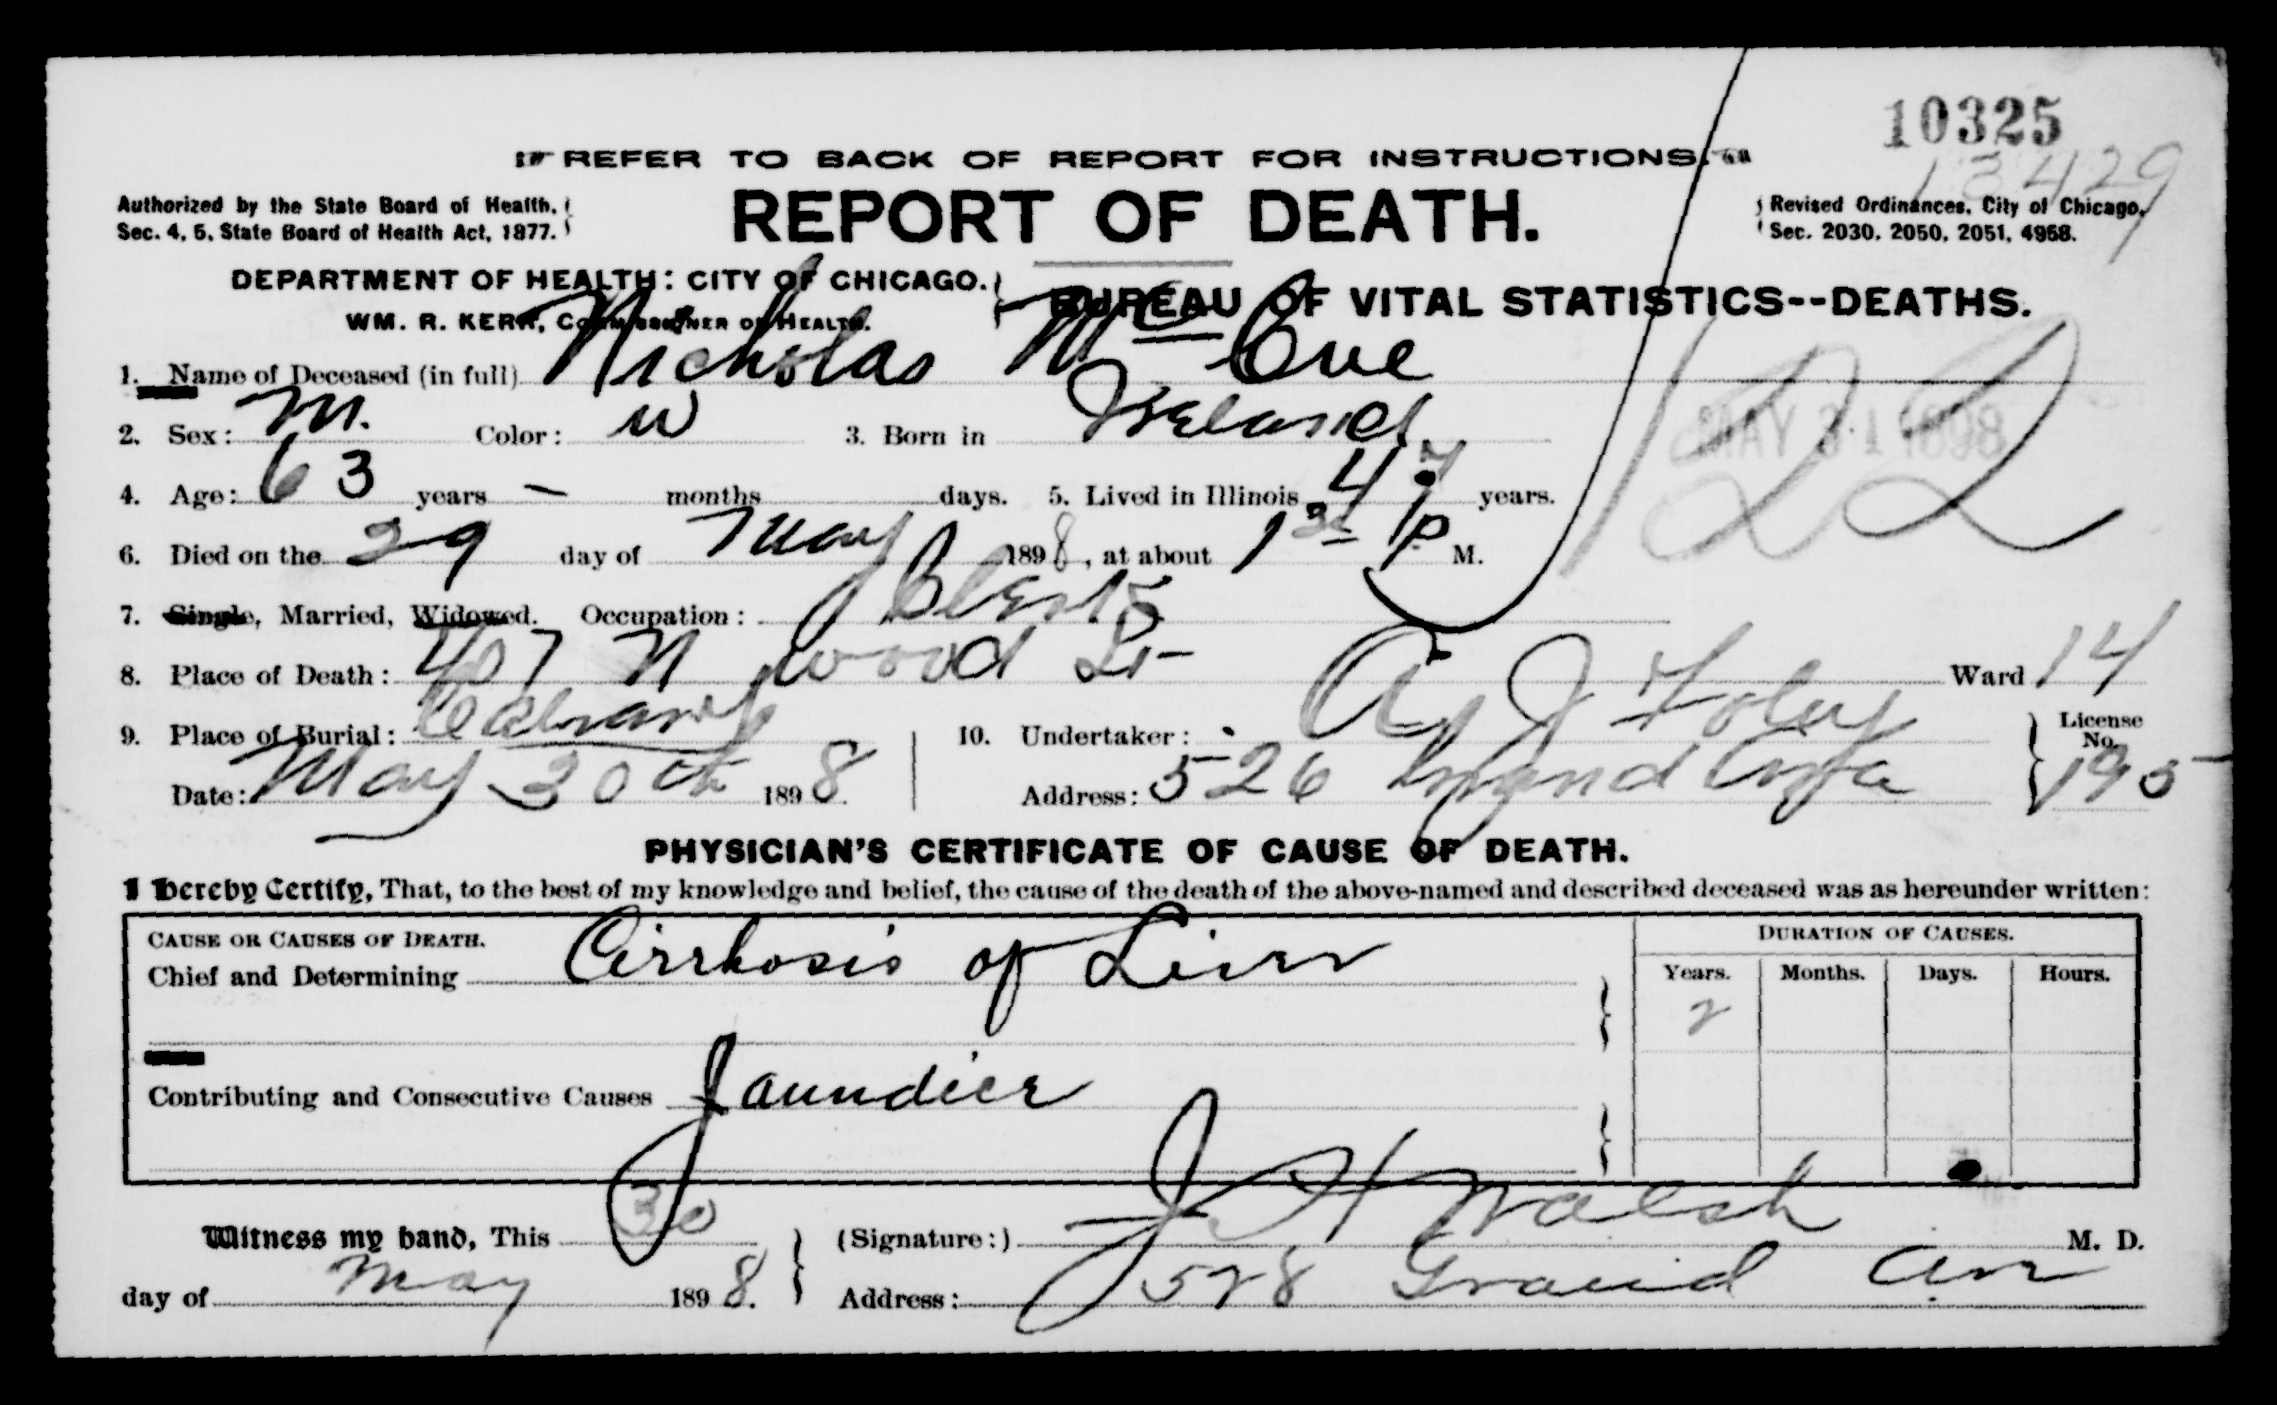 10325
13429
REFER TO BACK OF REPORT FOR INSTRUCTIONS.
Authorized by the State Board of Health,
Sec. 4, 5, State Board of Health Act, 1877.
REPORT OF DEATH.
Revised Ordinances, City of Chicago,
Sec. 2030, 2050, 2051, 4958.
DEPARTMENT OF HEALTH: CITY OF CHICAGO.
WM. R. KERR, COMMISSIONER OF HEALTH.
BUREAU OF VITAL STATISTICS--DEATHS.
1. Name of Deceased (in full) Nicholas Mc Cue
122
MAY 31 1898
2. Sex: M. Color: W 3. Born in Ireland
4. Age: 63 years – months days. 5. Lived in Illinois 47 years.
6. Died on the 29 day of May 1898, at about 1 30 P M.
7. Single, Married, Widowed. Occupation: Clerk
8. Place of Death: 467 N Wood St Ward 14
9. Place of Burial: Calvary 10. Undertaker: A J Foley License No. 195
Date: May 30th 1898 Address: 526 Grand Ave
PHYSICIAN'S CERTIFICATE OF CAUSE OF DEATH.
I hereby Certify, That, to the best of my knowledge and belief, the cause of the death of the above-named and described deceased was as hereunder written:
CAUSE OR CAUSES OF DEATH.
Chief and Determining Cirrhosis of Liver
DURATION OF CAUSES.
Years. Months. Days. Hours.
2
Contributing and Consecutive Causes Jaundice
Witness my hand, This 30 (Signature:) J H Walsh M. D.
day of May 1898. Address: 528 Grand Ave